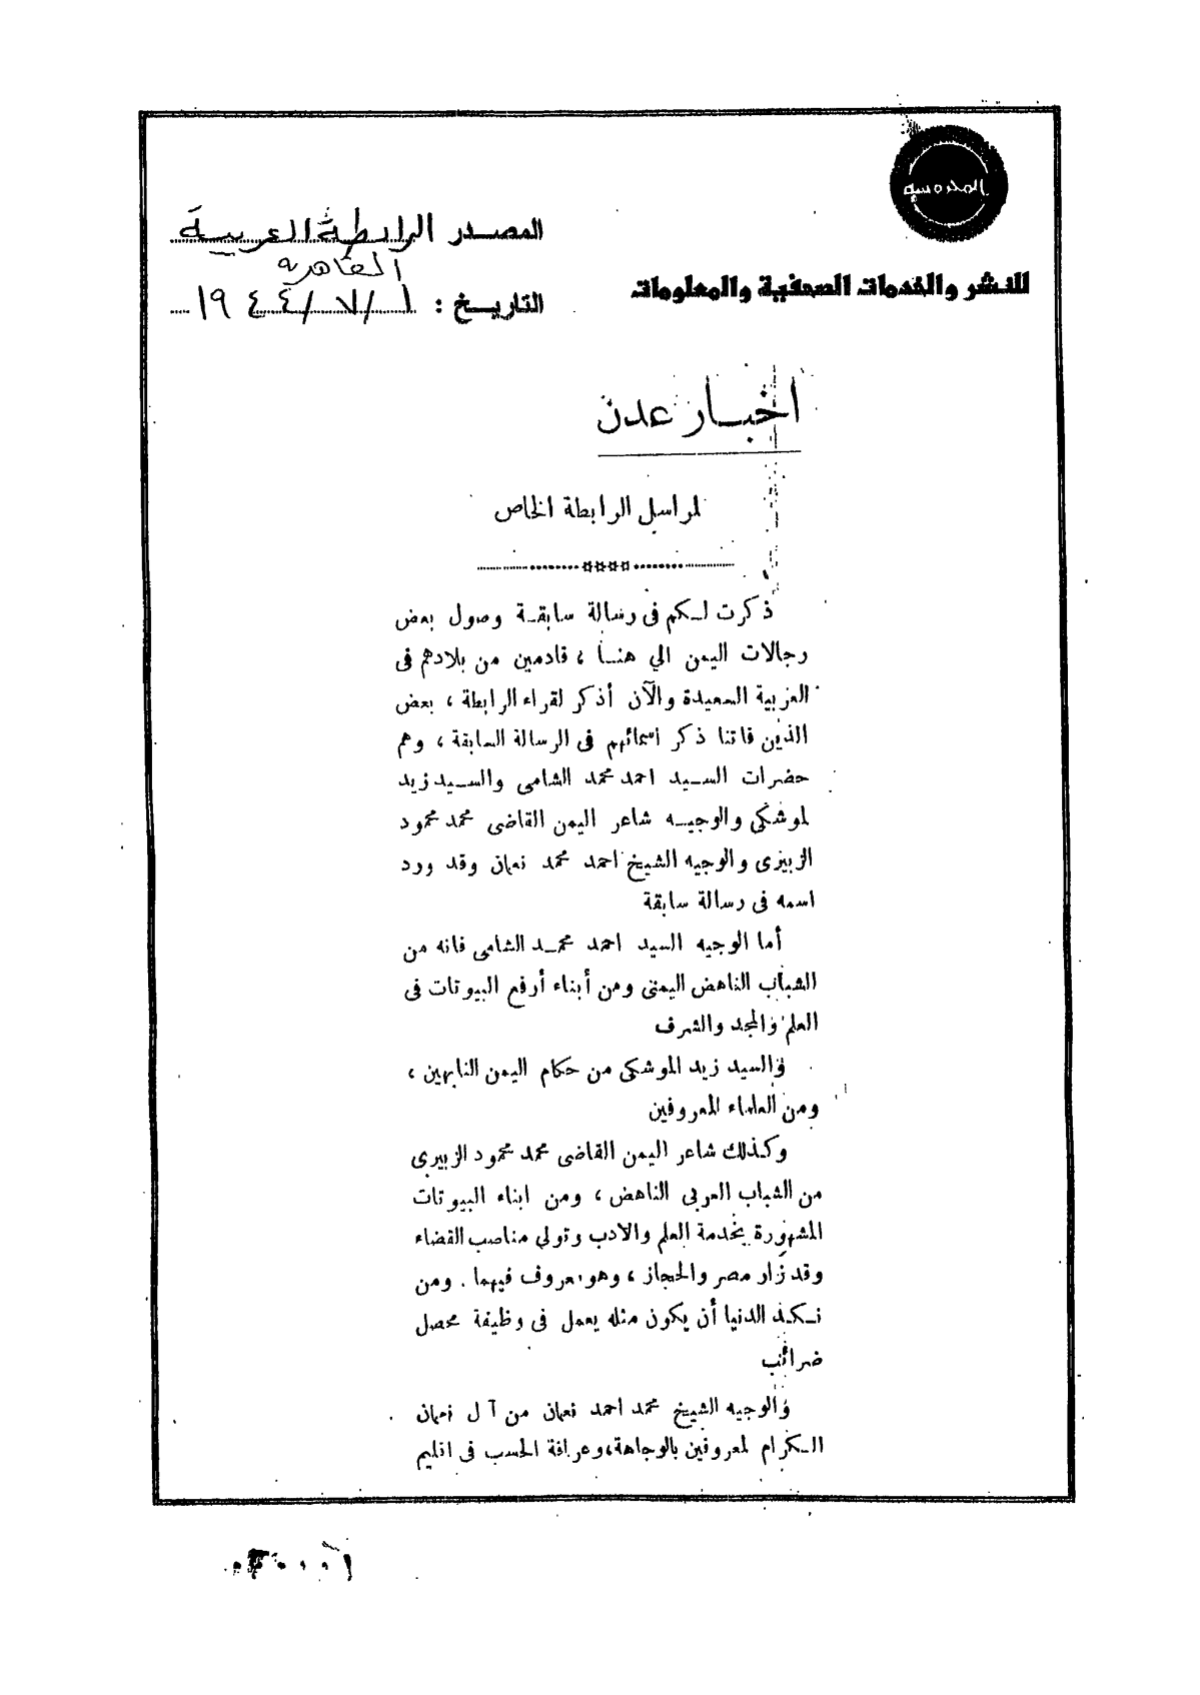 المحروسة
للنشر والخدمات الصحفية والمعلومات
المصدر الرابطة العربية
القاهرة
التاريخ : ١/٧/١٩٤٤
اخبار عدن
لمراسل الرابطة الخاص
ذكرت لكم فى رسالة سابقة وصول بعض
رجالات اليمن الي هنا ، قادمين من بلادهم فى
العربية السعيدة والآن أذكر لقراء الرابطة ، بعض
الذين فاتنا ذكر اسمائهم فى الرسالة السابقة ، وهم
حضرات السيد احمد محمد الشامى والسيد زيد
لموشكي والوجيه شاعر اليمن القاضى محمد محمود
الزبيرى والوجيه الشيخ احمد محمد نعمان وقد ورد
اسمه فى رسالة سابقة
أما الوجيه السيد احمد محمد الشامى فانه من
الشباب الناهض اليمنى ومن أبناء أرفع البيوتات فى
العلم والمجد والشرف
والسيد زيد الموشكى من حكام اليمن النابهين ،
ومن العلماء المعروفين
وكذلك شاعر اليمن القاضى محمد محمود الزبيرى
من الشباب العربى الناهض ، ومن ابناء البيوتات
المشهورة بخدمة العلم والادب وتولي مناصب القضاء
وقد زار مصر والحجاز ، وهو معروف فيهما . ومن
نكد الدنيا أن يكون مثله يعمل فى وظيفة محصل
ضرائب
والوجيه الشيخ محمد احمد نعمان من آل نعمان
الكرام لمعروفين بالوجاهة، وعراقة الحسب فى اقليم